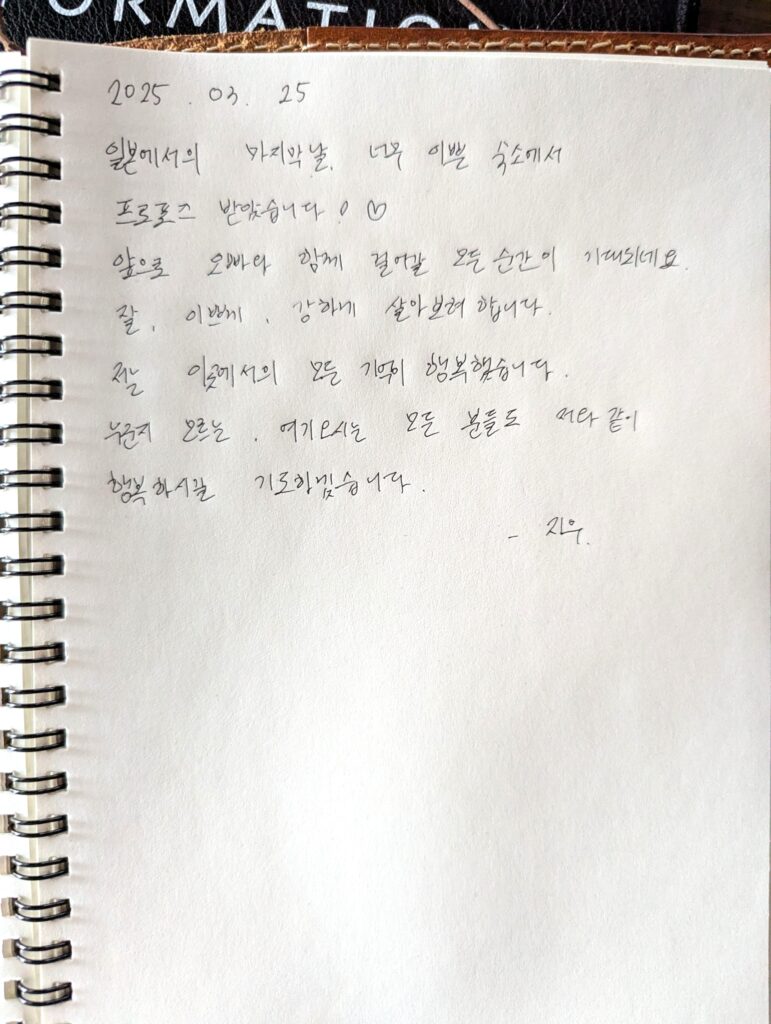 ORMATION
2025. 03. 25
일본에서의 마지막날, 너무 이쁜 숙소에서
프로포즈 받았습니다! ♡
앞으로 오빠와 함께 걸어갈 모든 순간이 기대되네요.
잘, 이쁘게, 강하게 살아보려 합니다.
저는 이곳에서의 모든 기억이 행복했습니다.
누군지 모르는, 여기오시는 모든 분들도 저와 같이
행복하시길 기도하겠습니다.
- 지우.